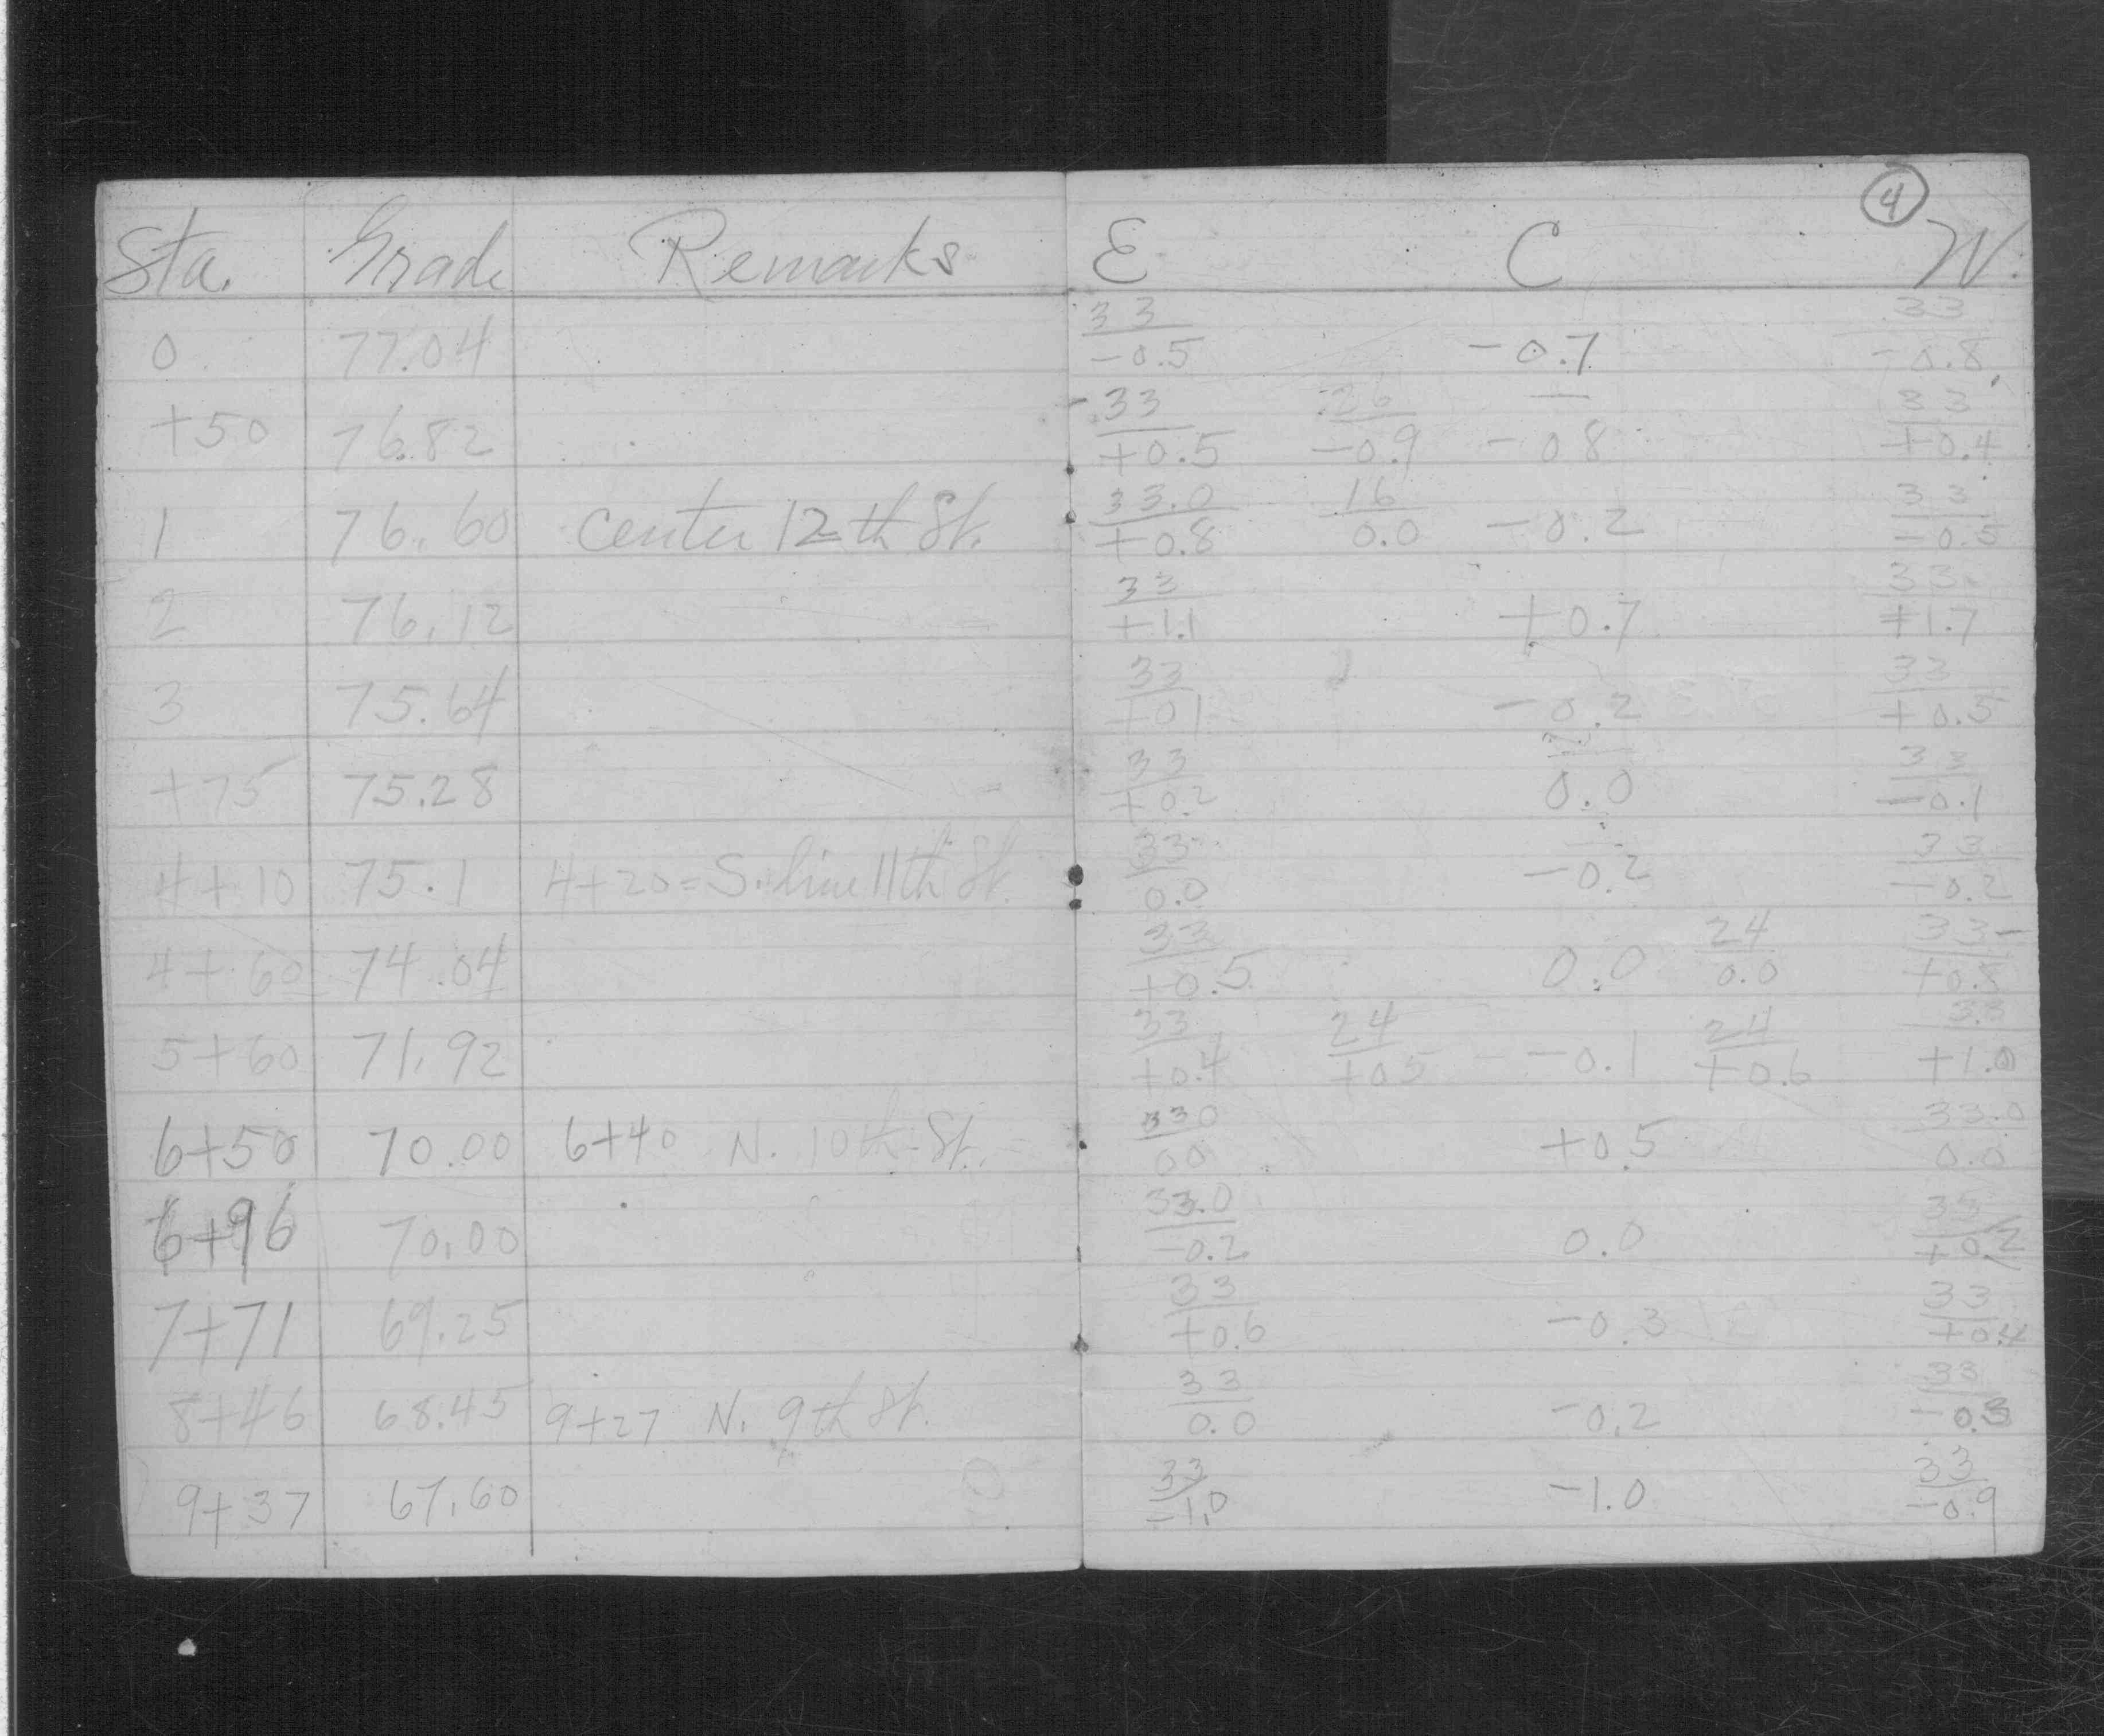 4
Sta. Grade Remarks E C W.
33 33
0 77.04 -0.5 -0.7 -0.8
33 26 33
+50 76.82 +0.5 -0.9 -0.8 +0.4
33.0 16 33
1 76.60 center 12th St. +0.8 0.0 -0.2 -0.5
33 33
2 76.12 +1.1 +0.7 +1.7
33 33
3 75.64 +0.1 -0.2 +0.5
33 33
+75 75.28 +0.2 0.0 -0.1
33 33
4+10 75.1 4+20=S. line 11th St. 0.0 -0.2 -0.2
33 24 33
4+60 74.04 +0.5 0.0 0.0 +0.8
33 24 24 33
5+60 71.92 +0.4 +0.5 -0.1 +0.6 +1.0
33.0 33.0
6+50 70.00 6+40 N. 10th St. 0.0 +0.5 0.0
33.0 33
6+96 70.00 -0.2 0.0 +0.2
33 33
7+71 69.25 +0.6 -0.3 +0.4
33 33
8+46 68.45 9+27 N. 9th St. 0.0 -0.2 -0.3
33 33
9+37 67.60 -1.0 -1.0 -0.9